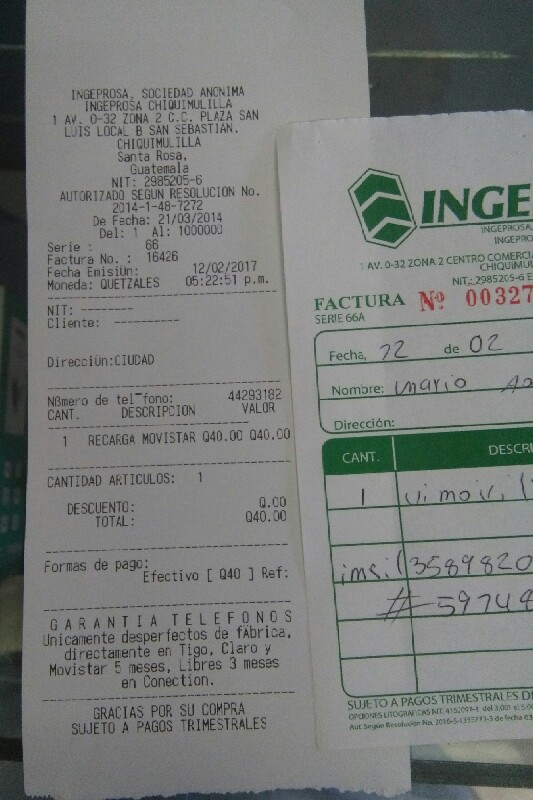 INGEPROSA, SOCIEDAD ANONIMA
INGEPROSA CHIQUIMULILLA
1 AV. 0-32 ZONA 2 C.C. PLAZA SAN
LUIS LOCAL B SAN SEBASTIAN.
CHIQUIMULILLA
Santa Rosa,
Guatemala
NIT: 2985205-6
AUTORIZADO SEGUN RESOLUCION No.
2014-1-48-7272
De Fecha: 21/03/2014
Del: 1 Al: 1000000
Serie : 66
Factura No. : 16426
Fecha Emisiün: 12/02/2017
Moneda: QUETZALES 05:22:51 p.m.
NIT: --------
Cliente: ----------
Direcciün:CIUDAD
Nßmero de tel~fono: 44293182
CANT. DESCRIPCION VALOR
1 RECARGA MOVISTAR Q40.00 Q40.00
CANTIDAD ARTICULOS: 1
DESCUENTO: Q.00
TOTAL: Q40.00
Formas de pago:
Efectivo [ Q40 ] Ref:
GARANTIA TELEFONOS
Unicamente desperfectos de fÄbrica,
directamente en Tigo, Claro y
Movistar 5 meses, Libres 3 meses
en Conection.
GRACIAS POR SU COMPRA
SUJETO A PAGOS TRIMESTRALES
INGE
INGEPROSA,
INGEPRO
1 AV. 0-32 ZONA 2 CENTRO COMERCI
CHIQUIMUL
NIT.: 2985205-6 E
FACTURA Nº 00327
SERIE 66A
Fecha, 12 de 02
Nombre: mario
Dirección:
CANT. DESCRI
1
3589820
# 59748
SUJETO A PAGOS TRIMESTRALES DE